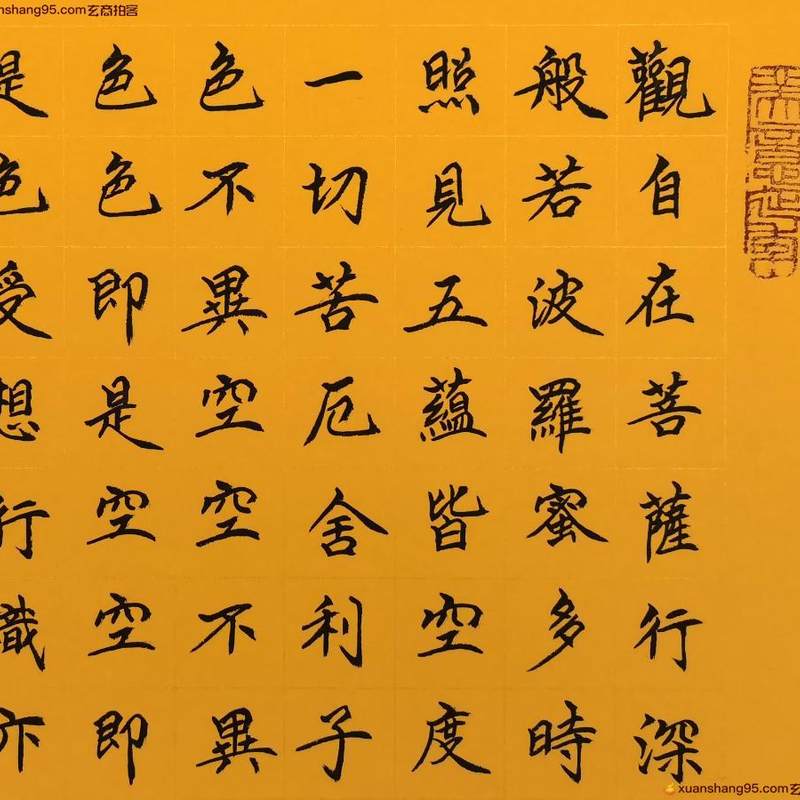 觀自在菩薩行深
般若波羅蜜多時
照見五蘊皆空度
一切苦厄舍利子
色不異空空不異
色色即是空空即
是色受想行識亦
nshang95.com玄商拍客
xuanshang95.com玄